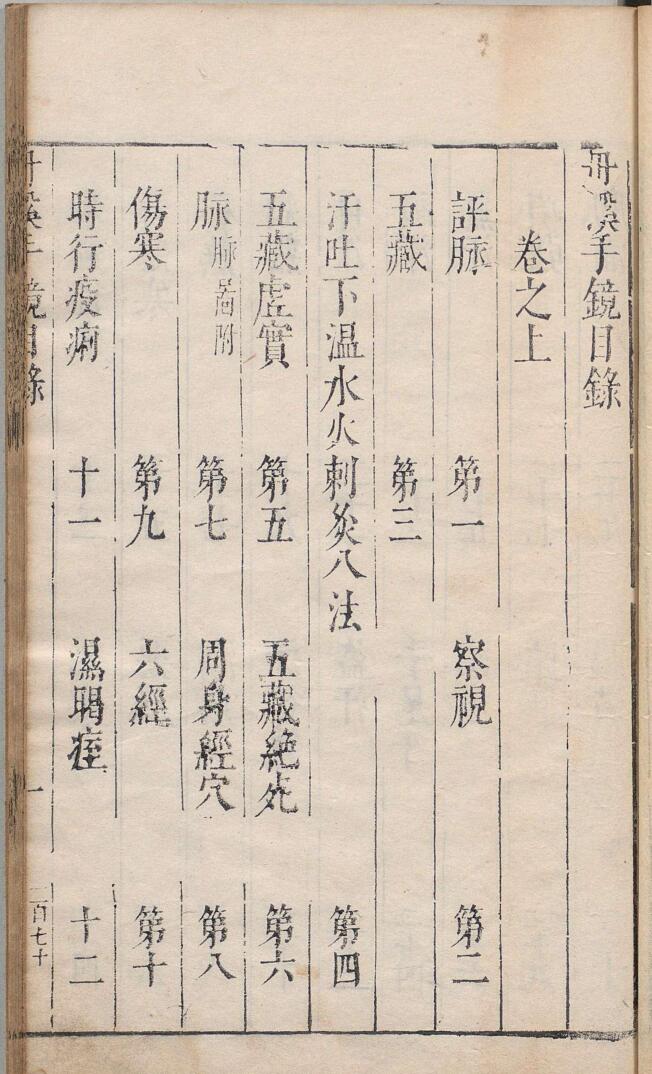 丹溪手鏡目錄
卷之上
評脉 第一 察視 第二
五藏 第三
汗吐下温水火刺灸八法 第四
五藏虛實 第五 五藏絶死 第六
脉 脉啚附 第七 周身經穴 第八
傷寒 第九 六經 第十
時行疫痢 十一 濕暍痓 十二
丹溪手鏡目錄 一 二百七十